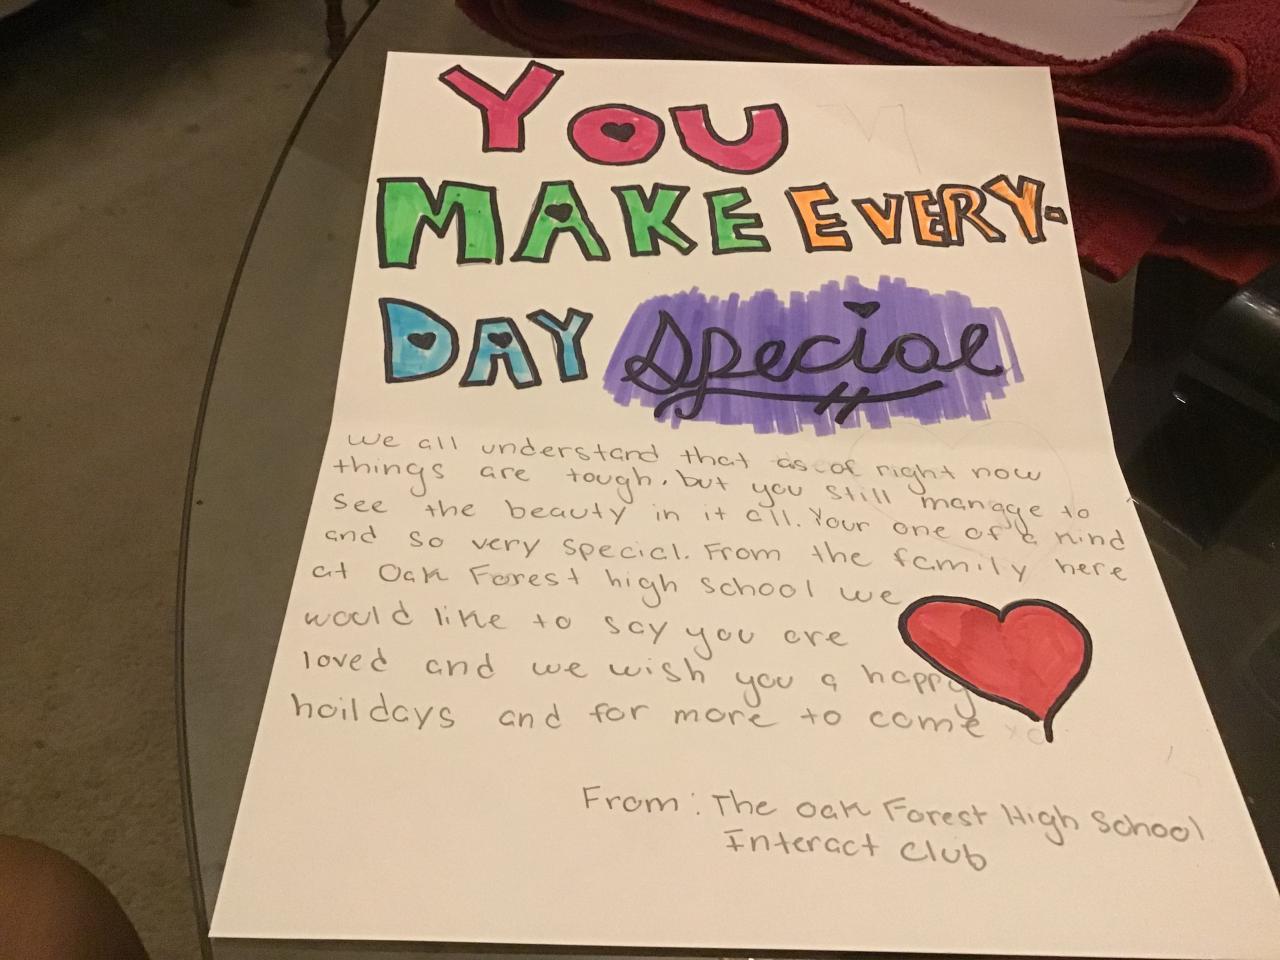 YOU
MAKE EVERY-
DAY Special
we all understand that as of right now
things are tough, but you still manage to
see the beauty in it all. Your one of a kind
and so very special. From the family here
at Oak Forest high school we
would like to say you are
loved and we wish you a happy
hoildays and for more to come
From: The Oak Forest High School
Interact Club